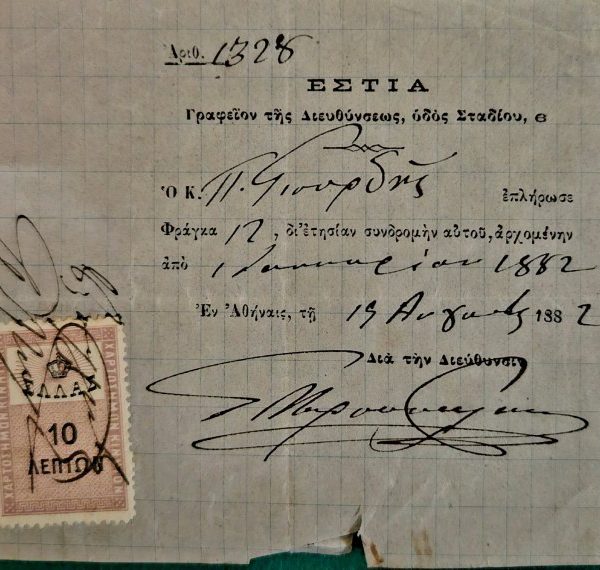 Ἀριθ. 1328
ΕΣΤΙΑ
Γραφεῖον τῆς Διευθύνσεως, ὁδὸς Σταδίου, 6
Ὁ Κ. Π. ἐπλήρωσε
Φράγκα 12, δι' ἐτησίαν συνδρομὴν αὑτοῦ, ἀρχομένην
ἀπὸ Ιανουαρίου 1882
Ἐν Ἀθήναις, τῇ 19 Αυγούστου 1882
Διὰ τὴν Διεύθυνσιν
ΕΛΛΑΣ
10
ΛΕΠΤΩΝ